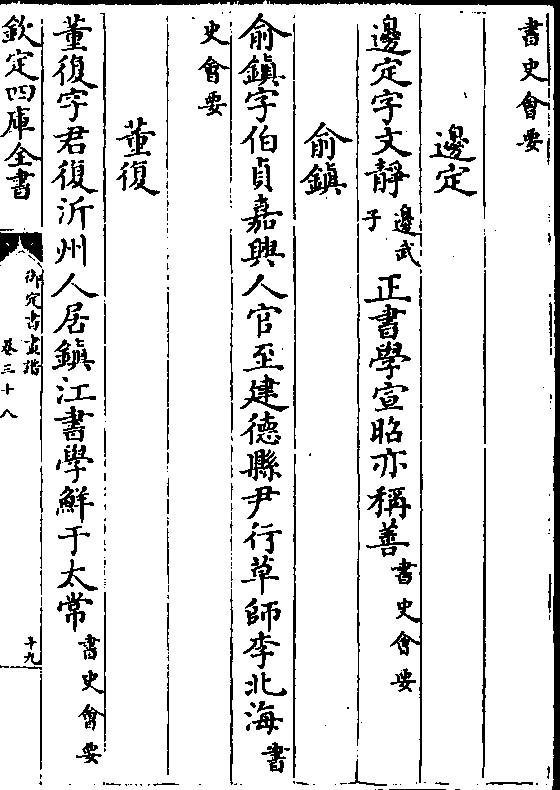 書史會要
邊定
邊定字文靜邊武子正書學宣昭亦稱善書史會要
俞鎮
俞鎮字伯貞嘉興人官至建德縣尹行草師李北海書
史會要
董復
董復字君復沂州人居鎮江書學鮮于太常書史會要
欽定四庫全書
御定書畫譜
卷三十八
十九